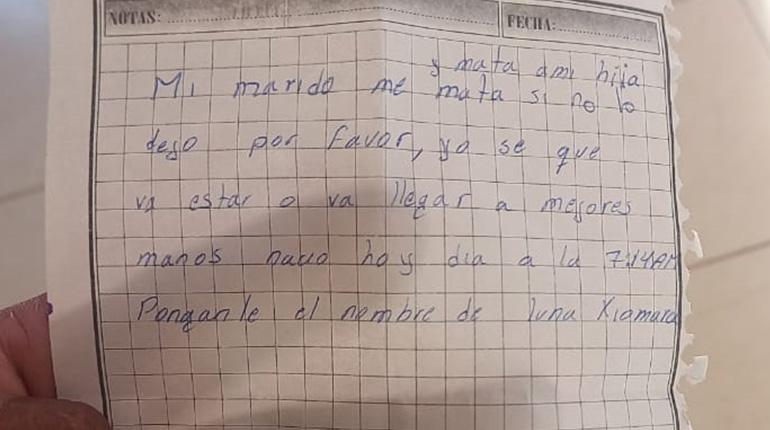 NOTAS:
FECHA:
y mata ami hija
Mi marido me mata si no lo
dejo por favor, yo se que
va estar o va llegar a mejores
manos nacio hoy dia a la 7:14AM
Pongan le el nombre de luna Xiamara